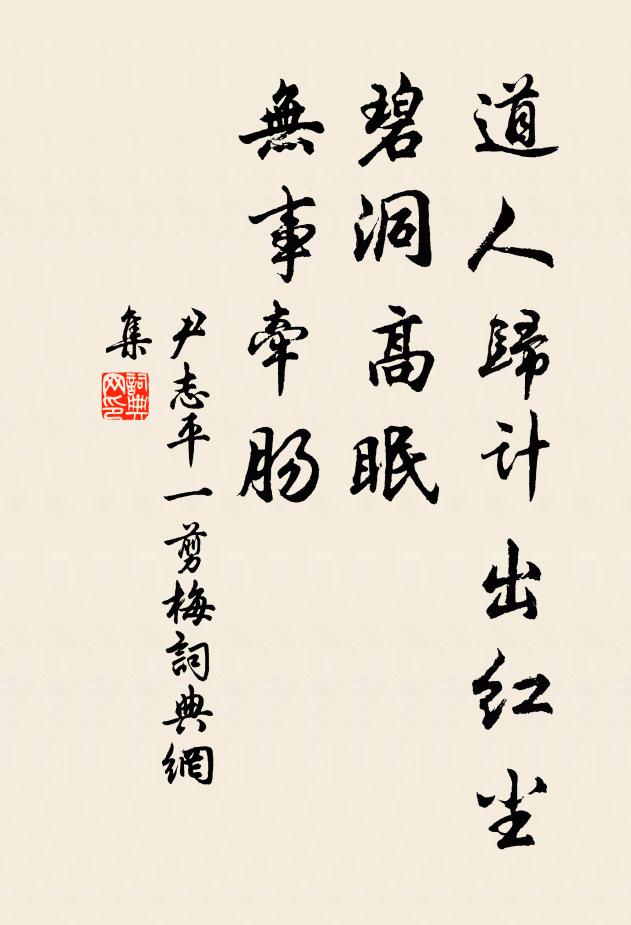 道人歸計出红尘
碧洞高眠
無事牵肠
尹志平一剪梅詞典網
集
詞典
网印